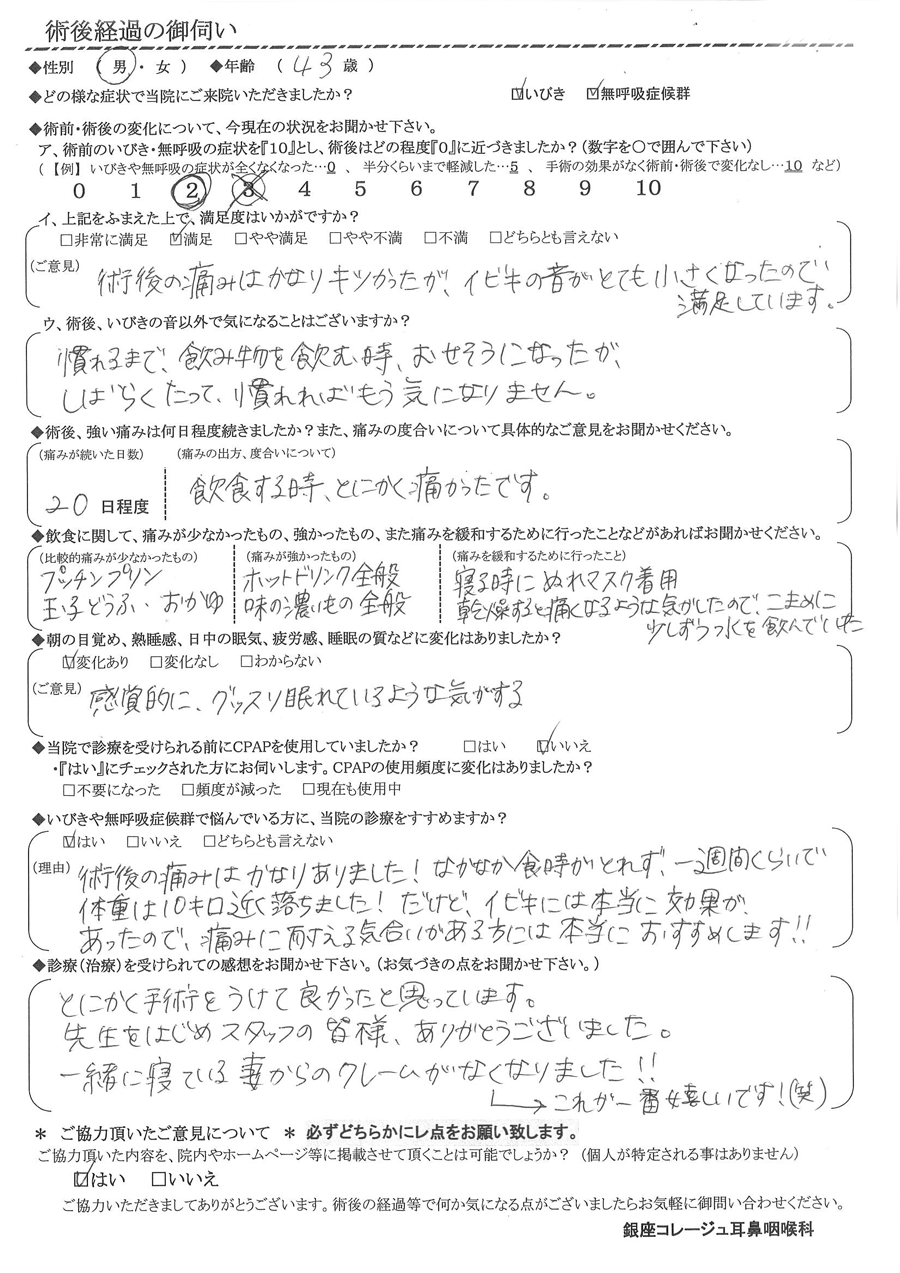 術後経過の御伺い
◆性別 ( 男 ・ 女 ) ◆年齢 ( 43 歳 )
◆どの様な症状で当院にご来院いただきましたか? ☑いびき ☑無呼吸症候群
◆術前・術後の変化について、今現在の状況をお聞かせ下さい。
ア、術前のいびき・無呼吸の症状を『10』とし、術後はどの程度『0』に近づきましたか?(数字を○で囲んで下さい)
(【例】いびきや無呼吸の症状が全くなくなった…0 、 半分くらいまで軽減した…5 、 手術の効果がなく術前・術後で変化なし…10 など)
0 1 2 3 4 5 6 7 8 9 10
イ、上記をふまえた上で、満足度はいかがですか?
□非常に満足 ☑満足 □やや満足 □やや不満 □不満 □どちらとも言えない
(ご意見) 術後の痛みはかなりキツかったが、イビキの音がとても小さくなったので
満足しています。
ウ、術後、いびきの音以外で気になることはございますか?
慣れるまで、飲み物を飲む時、むせそうになったが、
しばらくたって、慣れればもう気になりません。
◆術後、強い痛みは何日程度続きましたか?また、痛みの度合いについて具体的なご意見をお聞かせください。
(痛みが続いた日数) (痛みの出方、度合いについて)
20 日程度 飲食する時、とにかく痛かったです。
◆飲食に関して、痛みが少なかったもの、強かったもの、また痛みを緩和するために行ったことなどがあればお聞かせください。
(比較的痛みが少なかったもの) (痛みが強かったもの) (痛みを緩和するために行ったこと)
プッチンプリン ホットドリンク全般 寝る時にぬれマスク着用
玉子どうふ・おかゆ 味の濃いもの全般 乾燥すると痛くなるような気がしたので、こまめに
少しずつ水を飲んでいた
◆朝の目覚め、熟睡感、日中の眠気、疲労感、睡眠の質などに変化はありましたか?
☑変化あり □変化なし □わからない
(ご意見) 感覚的に、グッスリ眠れているような気がする
◆当院で診療を受けられる前にCPAPを使用していましたか? □はい ☑いいえ
・『はい』にチェックされた方にお伺いします。CPAPの使用頻度に変化はありましたか?
□不要になった □頻度が減った □現在も使用中
◆いびきや無呼吸症候群で悩んでいる方に、当院の診療をすすめますか?
☑はい □いいえ □どちらとも言えない
(理由) 術後の痛みはかなりありました!なかなか食時がとれず、一週間くらいで
体重は10キロ近く落ちました!だけど、イビキには本当に効果が
あったので、痛みに耐える気合いがある方には本当におすすめします!!
◆診療(治療)を受けられての感想をお聞かせ下さい。(お気づきの点をお聞かせ下さい。)
とにかく手術をうけて良かったと思っています。
先生をはじめスタッフの皆様、ありがとうございました。
一緒に寝ている妻からのクレームがなくなりました!!
→これが一番嬉しいです!(笑)
* ご協力頂いたご意見について * 必ずどちらかにレ点をお願い致します。
ご協力頂いた内容を、院内やホームページ等に掲載させて頂くことは可能でしょうか? (個人が特定される事はありません)
☑はい □いいえ
ご協力いただきましてありがとうございます。術後の経過等で何か気になる点がございましたらお気軽に御問い合わせください。
銀座コレージュ耳鼻咽喉科